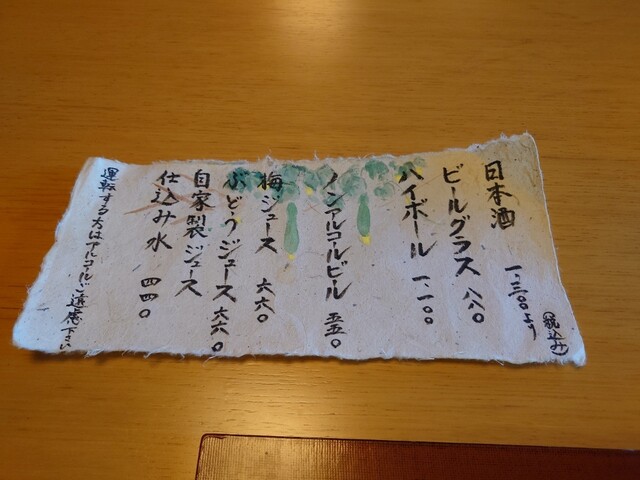 (税込み)
日本酒 一、三〇〇より
ビールグラス 八八〇
ハイボール 一、一〇〇
ノンアルコールビール 五五〇
梅ジュース 六六〇
ぶどうジュース 六六〇
自家製ジュース
仕込み水 四四〇
運転する方はアルコールご遠慮下さい